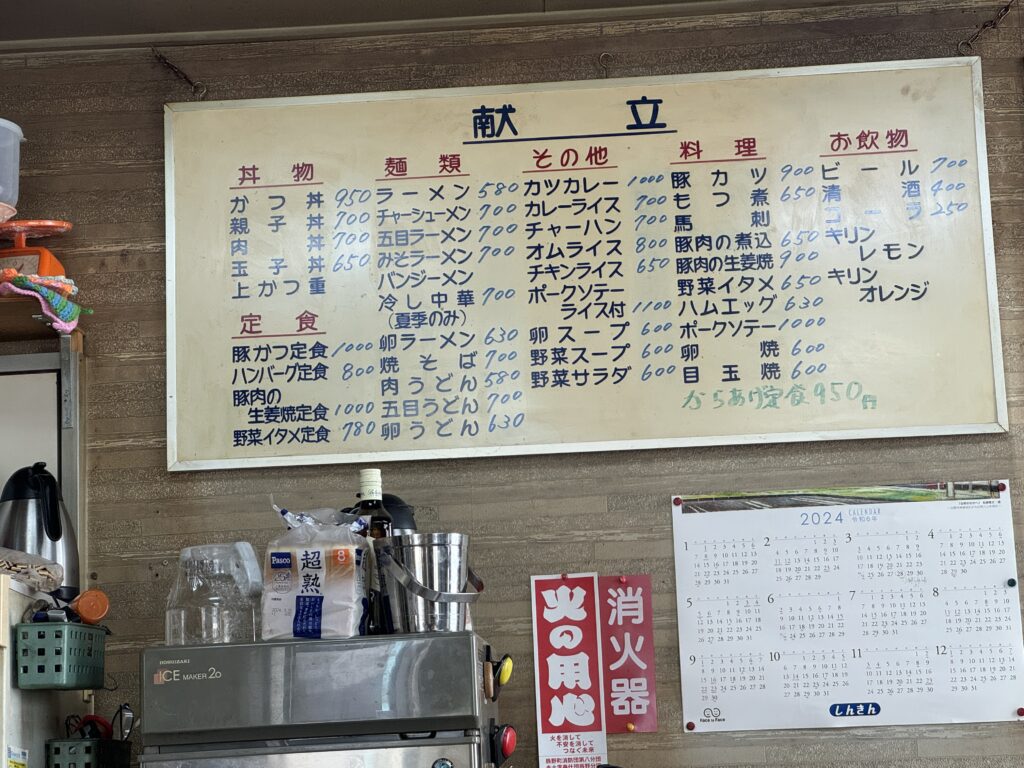 献立
丼物
かつ丼 950
親子丼 700
肉丼 700
玉子丼 650
上かつ重
定食
豚かつ定食 1000
ハンバーグ定食 800
豚肉の
生姜焼定食 1000
野菜イタメ定食 780
麺類
ラーメン 580
チャーシューメン 700
五目ラーメン 700
みそラーメン 700
バンジーメン
冷し中華 700
(夏季のみ)
卵ラーメン 630
焼そば 700
肉うどん 580
五目うどん 700
卵うどん 630
その他
カツカレー 1000
カレーライス 700
チャーハン 700
オムライス 800
チキンライス 650
ポークソテー
ライス付 1100
卵スープ 600
野菜スープ 600
野菜サラダ 600
料理
豚カツ 900
もつ煮 650
馬刺
豚肉の煮込 650
豚肉の生姜焼 900
野菜イタメ 650
ハムエッグ 630
ポークソテー 1000
卵焼 600
目玉焼 600
からあげ定食 950円
お飲物
ビール 700
清酒 400
コーラ 250
キリン
レモン
キリン
オレンジ
Pasco
超熟
8
HOSHIZAKI
ICE MAKER 20
火の用心
火を消して
不安を消して
つなぐ未来
消火器
2024 CALENDAR
令和6年
1
2
3
4
5
6
7
8
9
10
11
12
Face to Face
しんきん